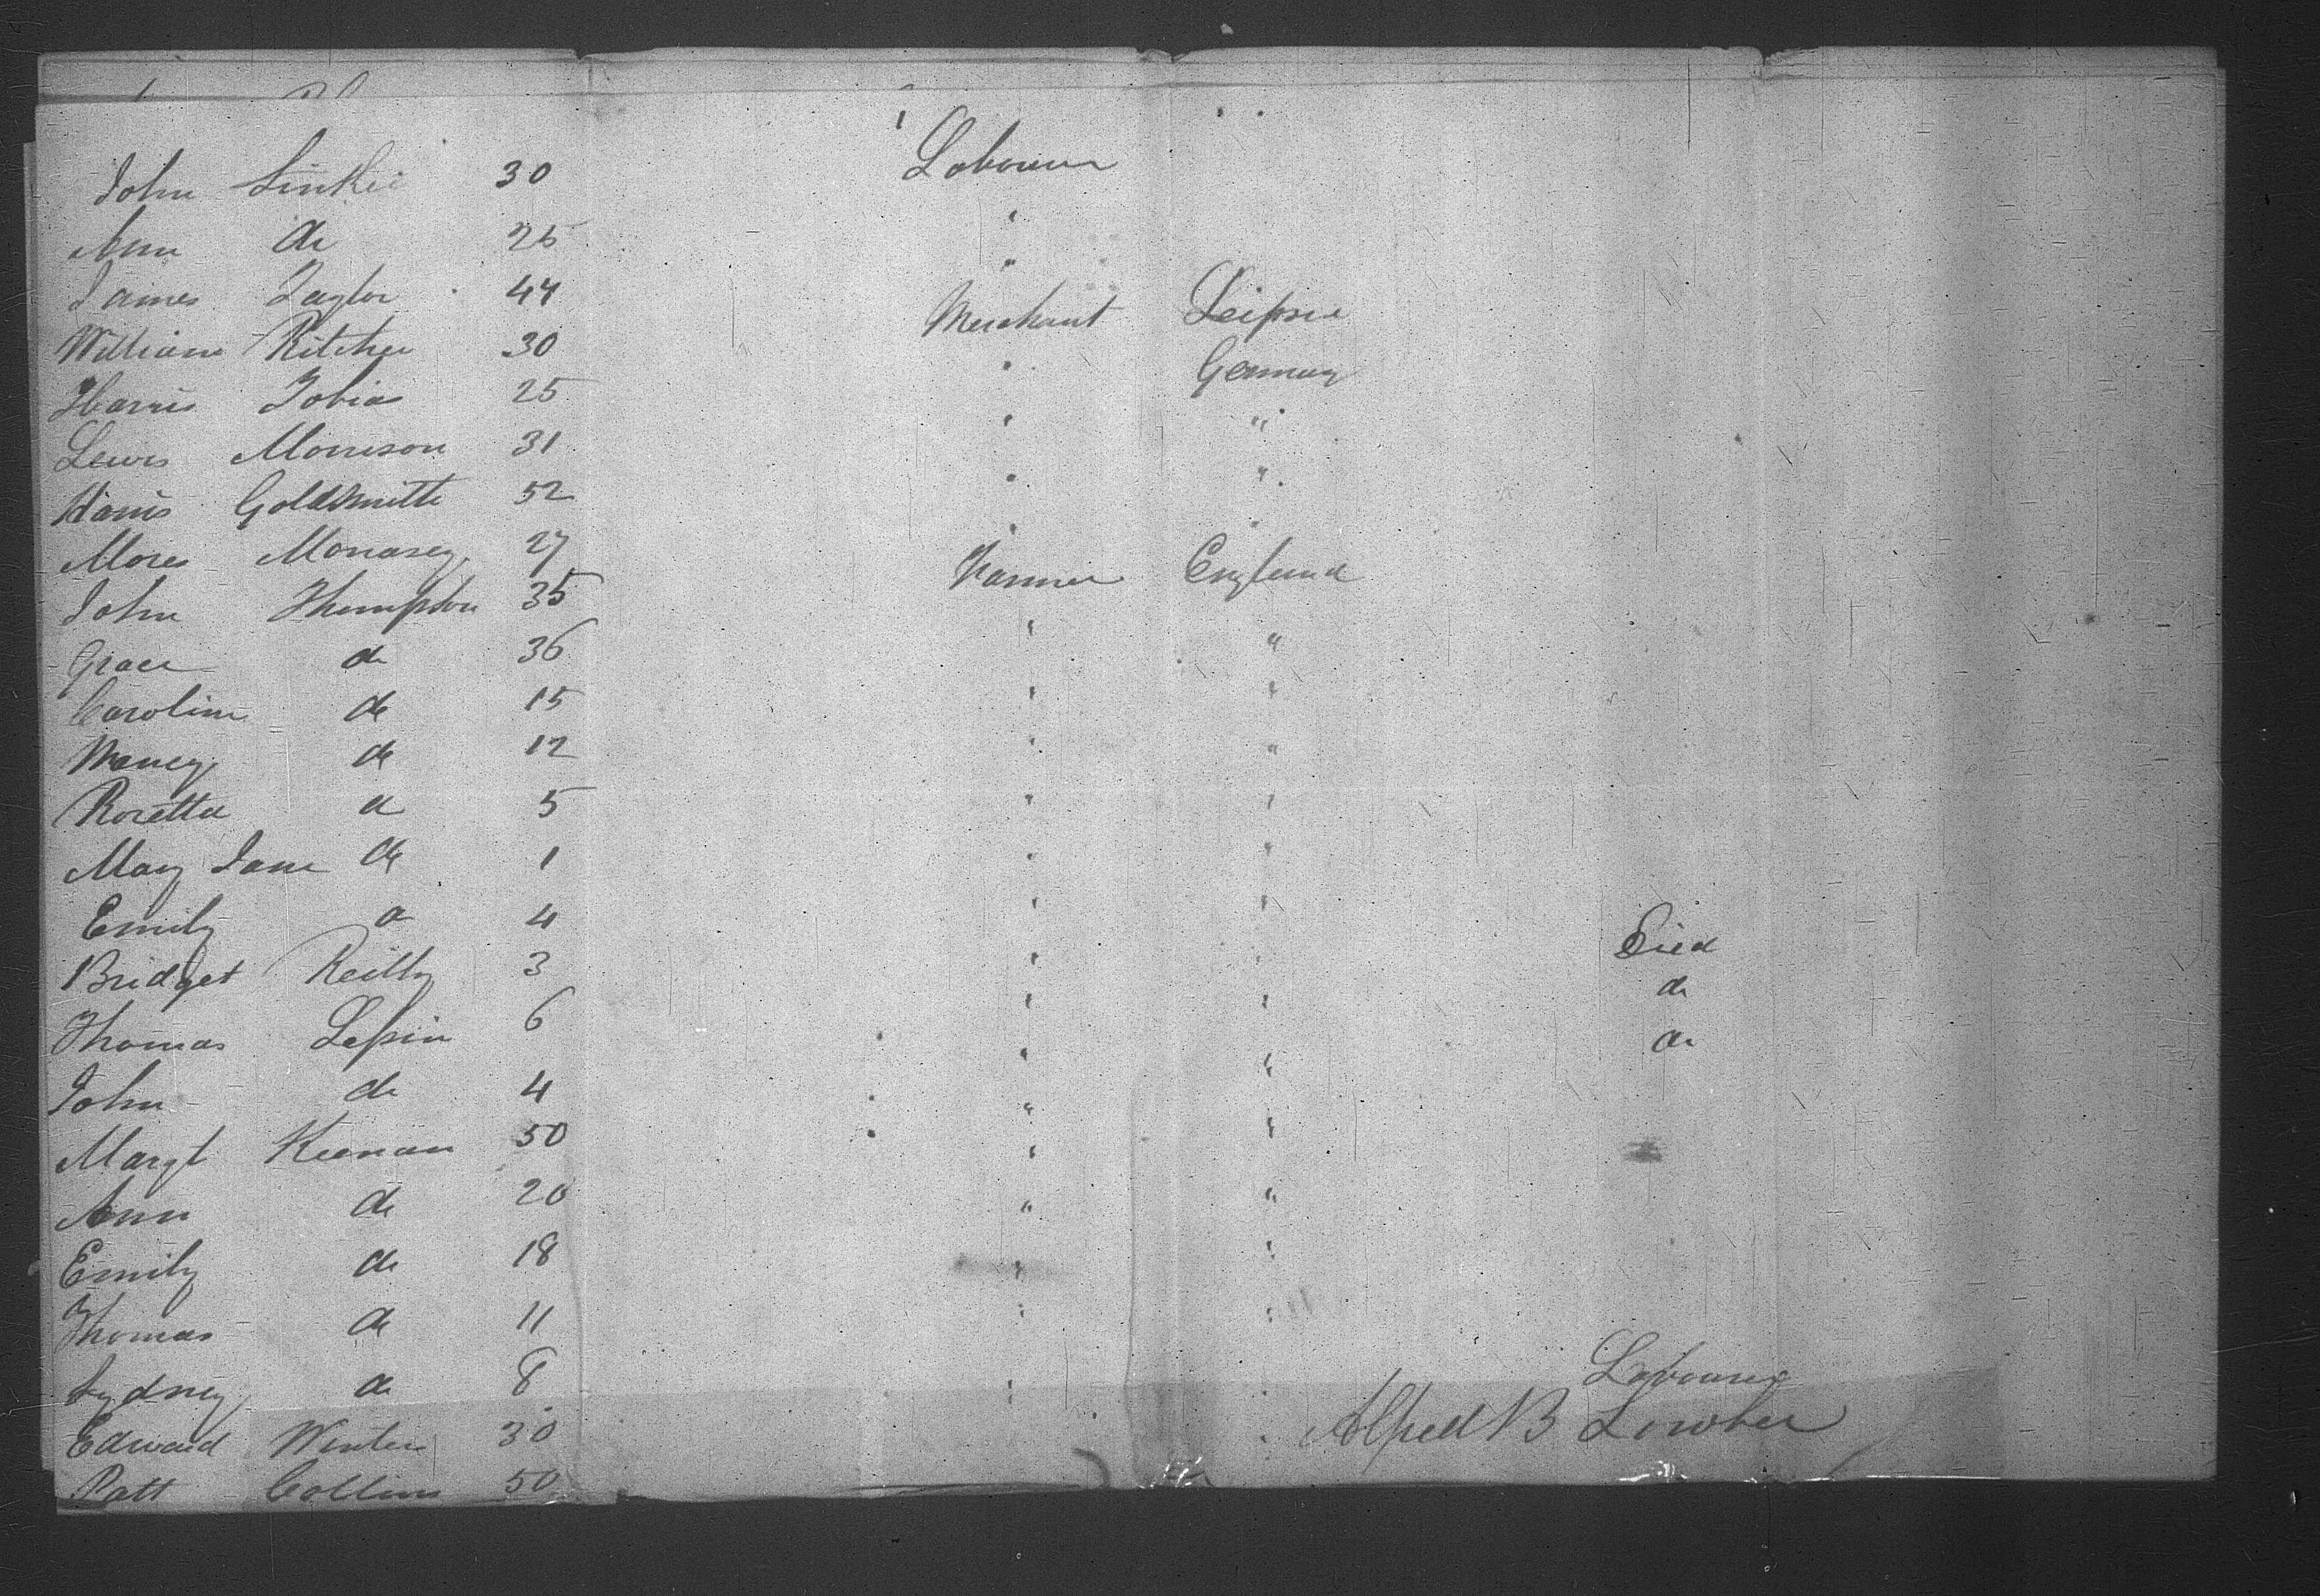 John Linkie 30 Labourer
Ann do 25 "
James Taylor 44 "
William Ritchie 30 Merchant Leipsic
Harris Tobias 25 " Germany
Lewis Morrison 31 " "
Harris Goldsmith 52 " "
Moses 27 "
John Thompson 35 Farmer England
Grace do 36 " "
Caroline do 15 " "
do 12 " "
Rosetta do 5 " "
Mary Jane do 1 " "
Emily do 4 " "
Bridget Reilly 3 " " Died
Thomas Lepin 6 " " do
John do 4 " " do
Margt Keenan 50 " "
Ann do 20 " "
Emily do 18 " "
Thomas do 11 " "
Sydney do 8 " " Labourer
Edward Winter 30
Patt Collins 50
Alfred B Lowber